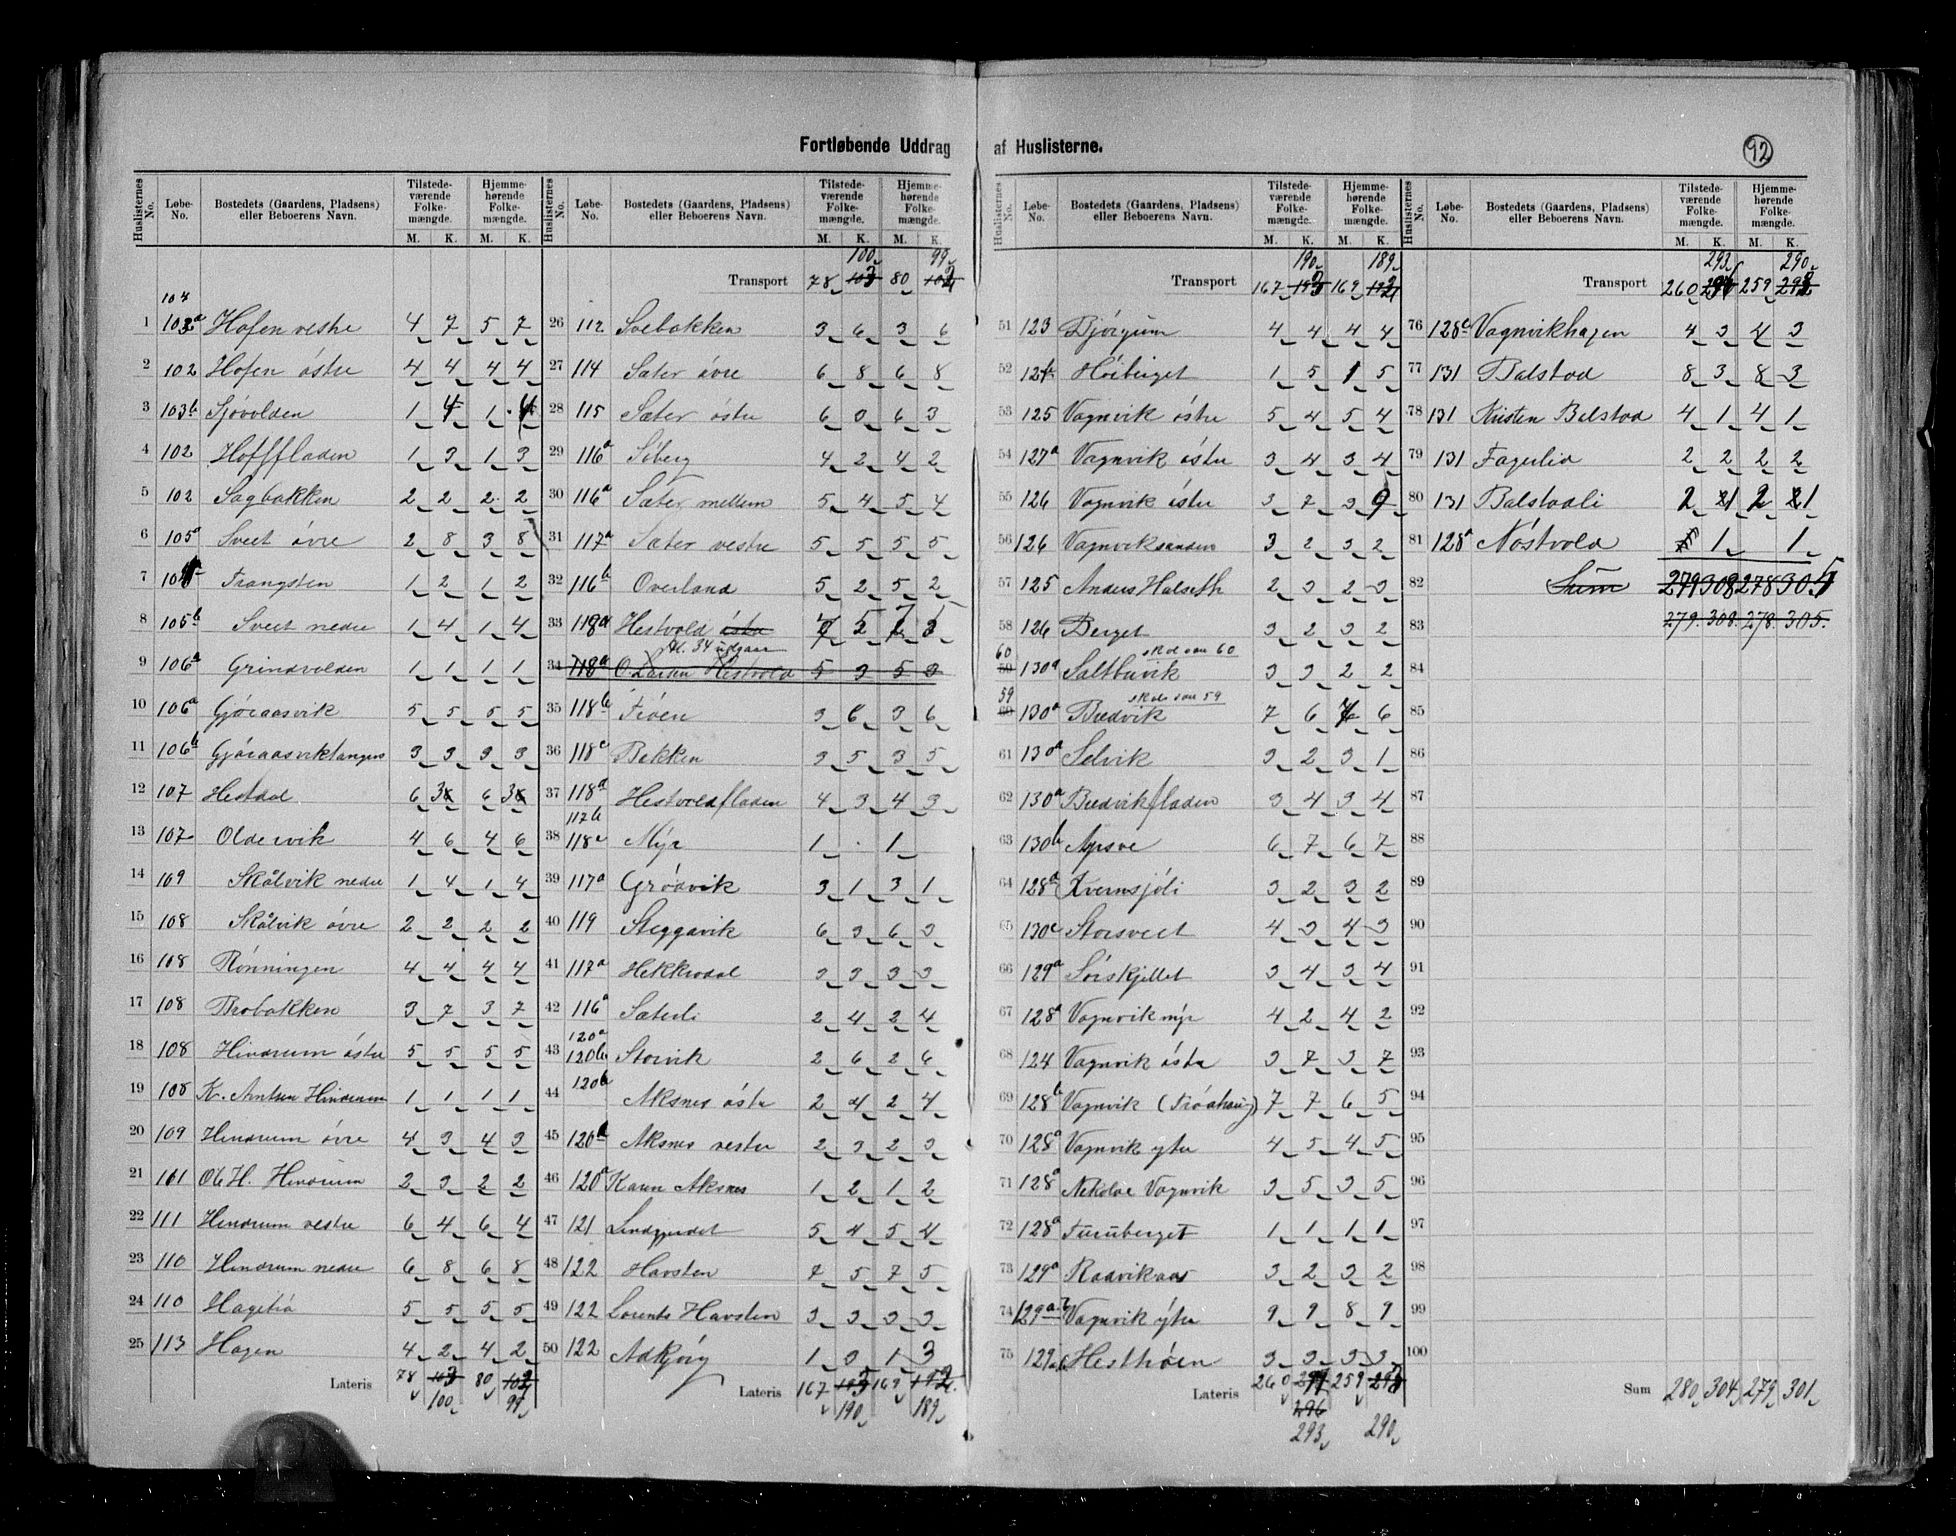 Fortløbende Uddrag af Huslisterne.
92
Huslisternes No. Løbe-No. Bostedets (Gaardens, Pladsens) eller Beboerens Navn. Tilstedeværende Folkemængde. M. K. Hjemmehørende Folkemængde. M. K.
104
1 103a Hofen vestre 4 7 5 7
2 102 Hofen östre 4 4 4 4
3 103b Sjövolden 1 4 1 4
4 102 Hoffladen 1 3 1 3
5 102 Sagbakken 2 2 2 2
6 105a Sveet övre 2 8 3 8
7 Trangsten 1 2 1 2
8 105b Sveet nedre 1 4 1 4
9 106a Grindvolden 1 1 1 1
10 106a Gjöraasvik 5 5 5 5
11 106b Gjöraasviktangen 3 3 3 3
12 107 Hestdal 6 3 6 3
13 107 Oldervik 4 6 4 6
14 109 Skålvik nedre 1 4 1 4
15 108 Skålvik övre 2 2 2 2
16 108 Rönningen 4 4 4 4
17 108 Throbakken 3 7 3 7
18 108 Hindrum östre 5 5 5 5
19 108 K. Arntsen Hindrum 1 1 1 1
20 109 Hindrum övre 4 3 4 3
21 101 Ole H. Hindrum 2 3 2 2
22 111 Hindrum vestre 6 4 6 4
23 110 Hindrum nedre 6 8 6 8
24 110 Hagetrö 5 5 5 5
25 113 Hagen 4 2 4 2
Lateris 78 103 80 102
100 99
Huslisternes No. Løbe-No. Bostedets (Gaardens, Pladsens) eller Beboerens Navn. Tilstedeværende Folkemængde. M. K. Hjemmehørende Folkemængde. M. K.
100 99
Transport 78 103 80 102
26 112 Svebakken 3 6 3 6
27 114 Sæter övre 6 8 6 8
28 115 Sæter östre 6 0 6 3
29 116a Söberg 4 2 4 2
30 116a Sæter mellem 5 4 5 4
31 117a Sæter vestre 5 5 5 5
32 116b Overland 5 2 5 2
33 118a Hestvold östre 7 5 7 5
Nl. 34 udgaar
34 118a O. Larsen Hestvold 5 3 5 3
35 118b Fröen 3 6 3 6
36 118c Bakken 3 5 3 5
37 118a Hestvoldfladen 4 3 4 3
117b
38 118c Myr 1 . 1
39 117a Grödvik 3 1 3 1
40 119 Steggavik 6 3 6 3
41 117a Hekkrodal 3 3 3 3
42 116a Sæterli 2 4 2 4
120a
43 120b Storvik 2 6 2 6
120b
44 Aksnes östre 2 4 2 4
45 120a Aksnes vestre 2 3 2 3
46 120a Karen Aksnes 1 2 1 2
47 121 Lindgjerdet 5 4 5 4
48 122 Havsten 7 5 7 5
49 122 Lorents Havsten 3 3 3 3
50 122 Adkjörg 1 3 1 3
Lateris 167 193 169 192
190 189
Huslisternes No. Løbe-No. Bostedets (Gaardens, Pladsens) eller Beboerens Navn. Tilstedeværende Folkemængde. M. K. Hjemmehørende Folkemængde. M. K.
190 189
Transport 167 193 169 192
51 123 Djörgum 4 4 4 4
52 124 Höiberget 1 5 1 5
53 125 Vagnvik östre 5 4 5 4
54 127a Vagnvik östre 3 4 3 4
55 126 Vagnvik östre 3 7 3 9
56 126 Vagnviksanden 3 2 3 2
57 125 Anders Halseth 2 3 2 3
58 126 Berget 3 2 3 2
skal være 60
60 59 130a Saltbuvik 3 3 2 2
skal være 59
59 60 130a Bredvik 7 6 7 6
61 130a Selvik 3 2 3 1
62 130a Bredvikfladen 3 4 3 4
63 130b Apsve 6 7 6 7
64 128a Kvernsjöli 3 2 3 2
65 130c Storsveet 4 3 4 3
66 129a Sörskjellet 3 4 3 4
67 128a Vagnvikmyr 4 2 4 2
68 124 Vagnvik östre 3 7 3 7
69 128b Vagnvik (Fröshaug) 7 7 6 5
70 128a Vagnvik ytre 4 5 4 5
71 128a Nikolai Vagnvik 3 5 3 5
72 128a Furuberget 1 1 1 1
73 129a Rødvikaas 3 2 3 2
74 129a Vagnvik ytre 9 9 8 9
75 129 Hesthöien 3 3 3 3
Lateris 260 259
296
293 290
Huslisternes No. Løbe-No. Bostedets (Gaardens, Pladsens) eller Beboerens Navn. Tilstedeværende Folkemængde. M. K. Hjemmehørende Folkemængde. M. K.
293 290
Transport 260 259
76 128c Vagnvikhagen 4 3 4 3
77 131 Balstad 8 3 8 3
78 131 Kristen Balstad 4 1 4 1
79 131 Fagerlid 2 2 2 2
80 131 Balstadli 2 1 2 1
81 128a Nöstvold 1 1
82 Sum 279 308 278 305
83 279. 308. 278. 305.
84
85
86
87
88
89
90
91
92
93
94
95
96
97
98
99
100
Sum 280 304 279 301